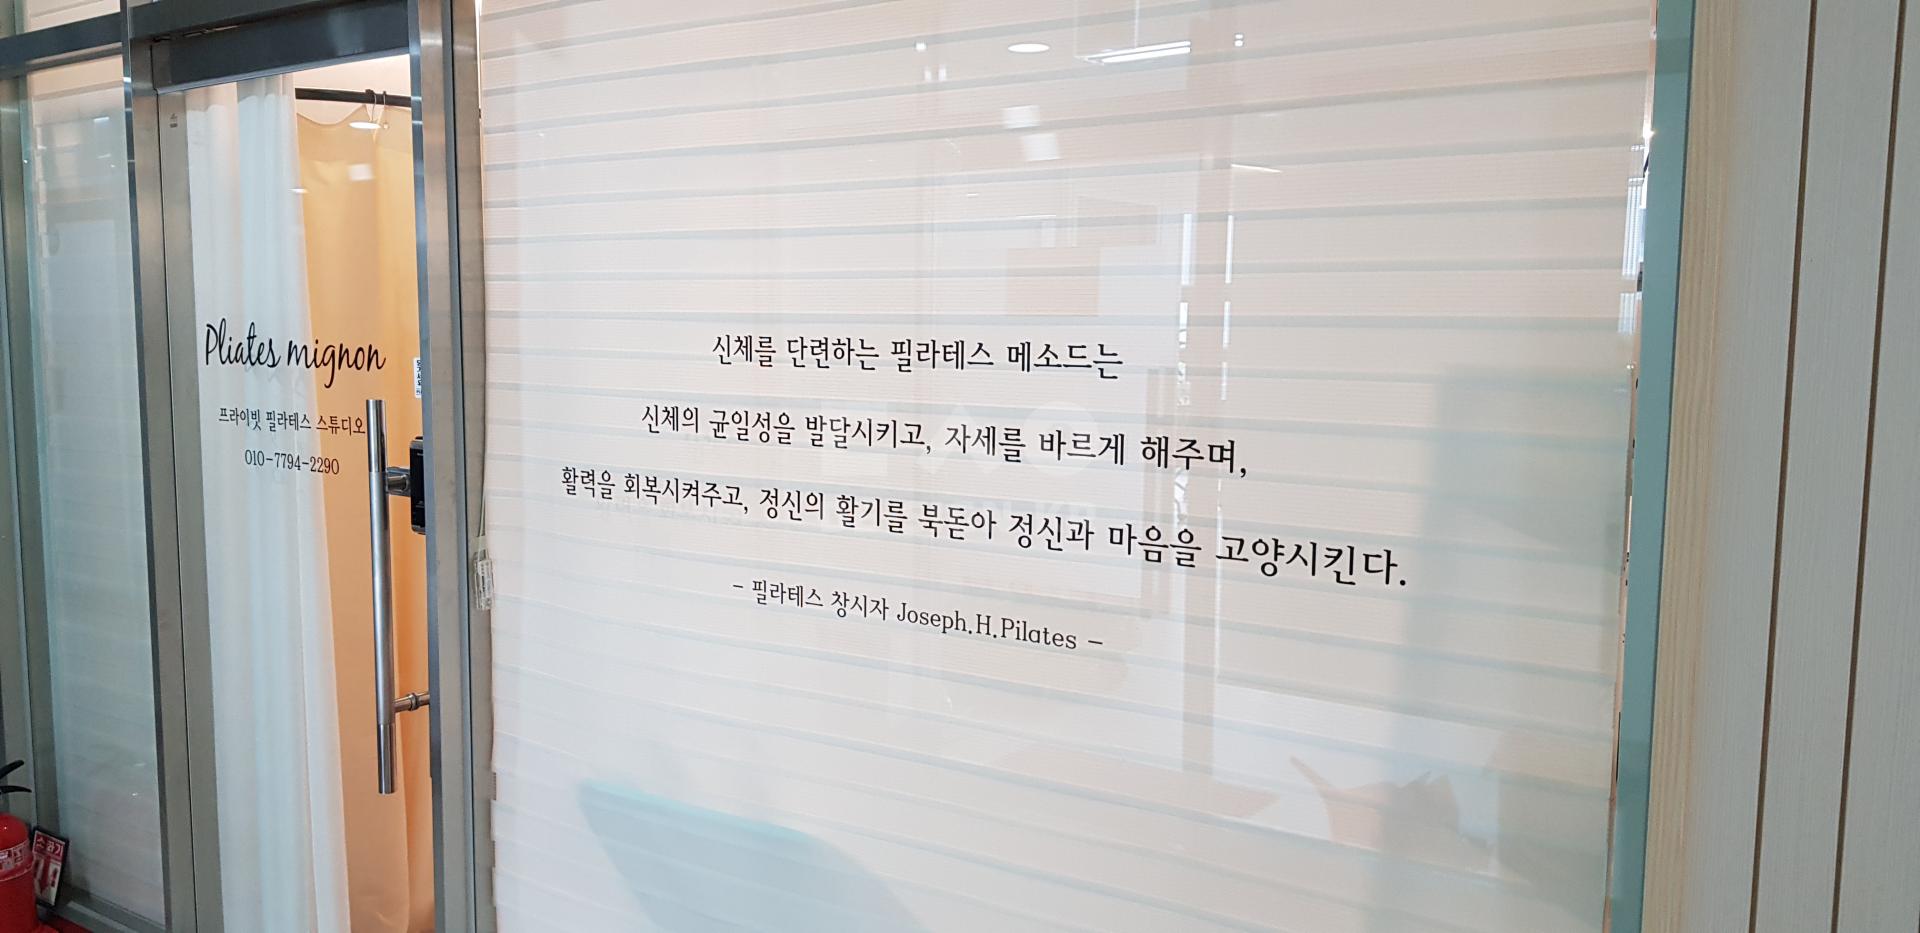 Pliates mignon
프라이빗 필라테스 스튜디오
010-7794-2290
신체를 단련하는 필라테스 메소드는
신체의 균일성을 발달시키고, 자세를 바르게 해주며,
활력을 회복시켜주고, 정신의 활기를 북돋아 정신과 마음을 고양시킨다.
- 필라테스 창시자 Joseph.H.Pilates -
소화기